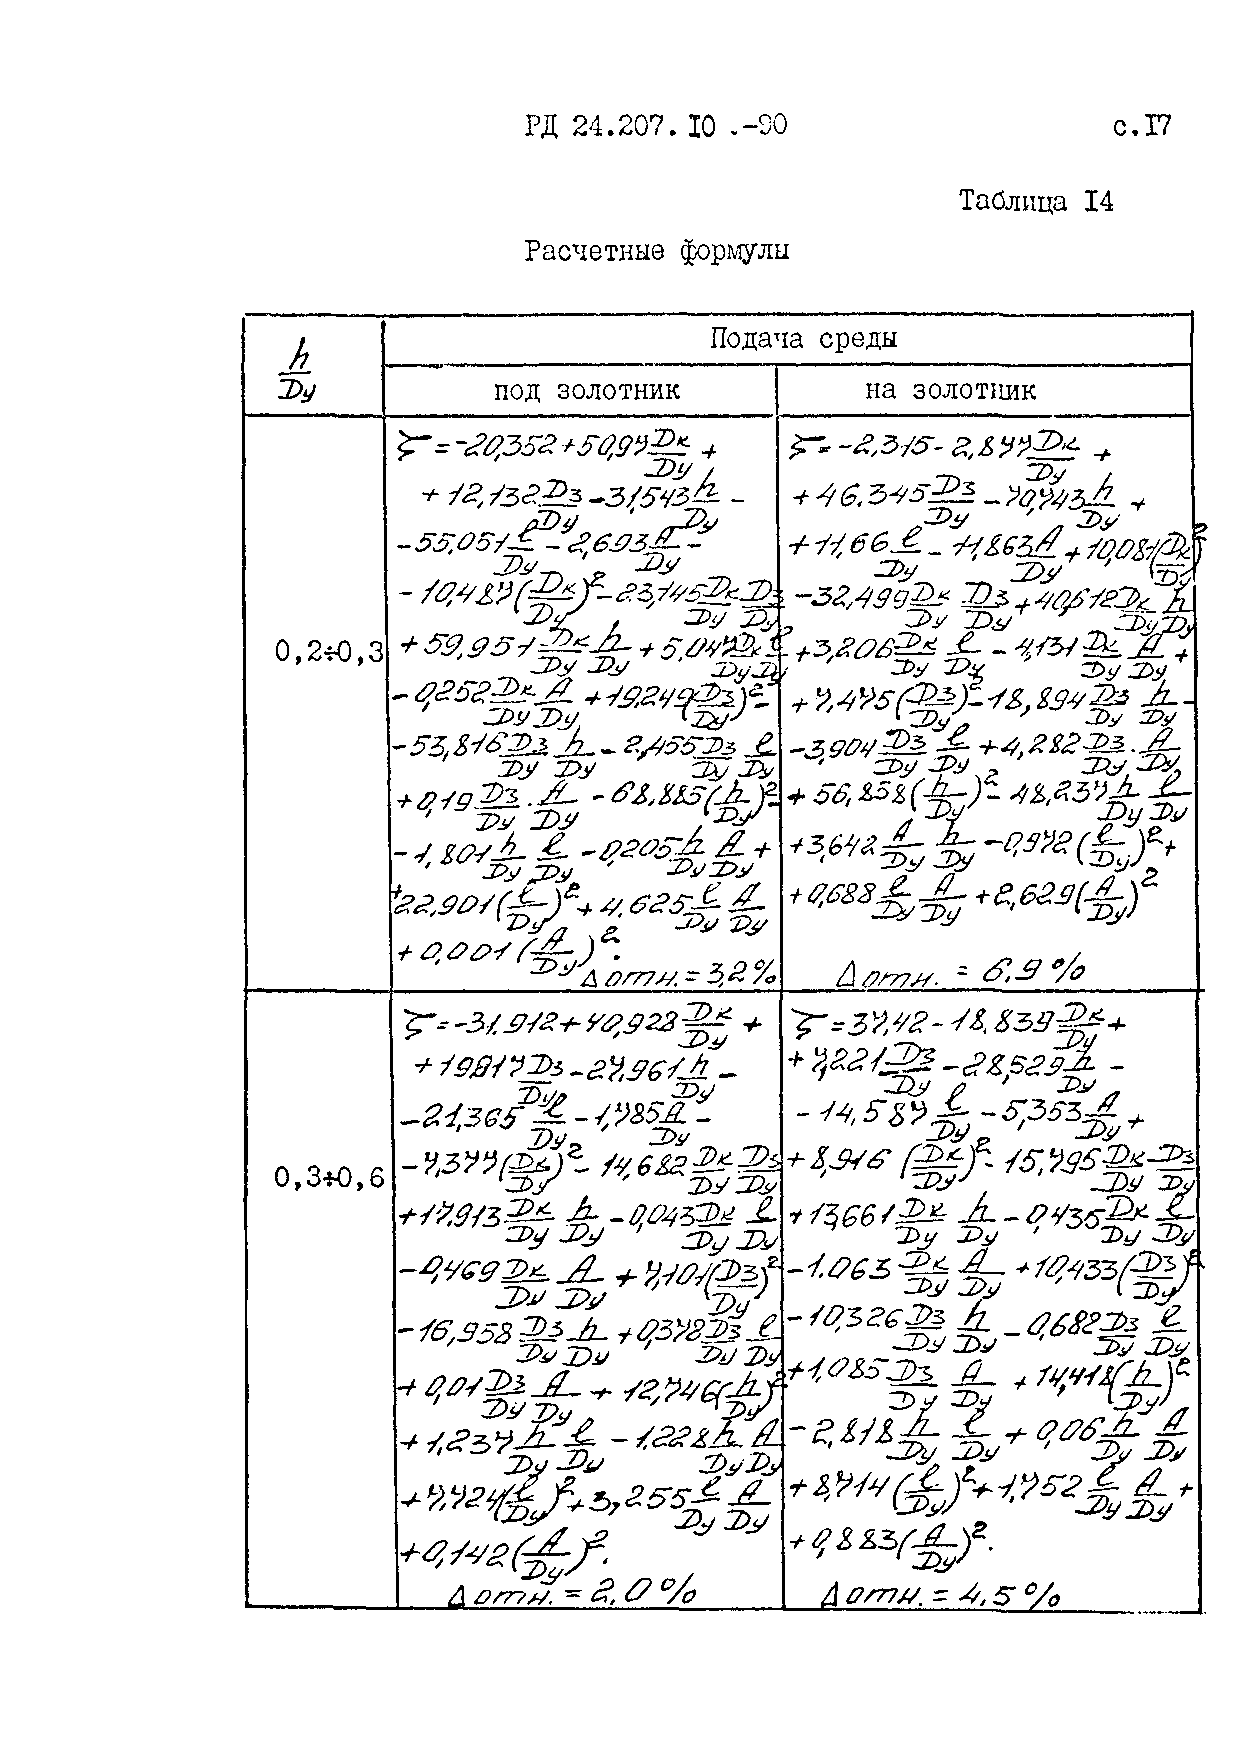 РД 24.207.10.-90 с.17
Таблица 14
Расчетные формулы
h/Dy
Подача среды
под золотник
на золотник
0,2÷0,3
ζ=-20,352+50,97 Dк/Dy +
+12,132 Dз/Dy -31,543 h/Dy -
-55,051 ℓ/Dy -2,693 A/Dy -
-10,487(Dк/Dy)² -23,145 Dк/Dy Dз/Dy
+59,951 Dк/Dy h/Dy +5,047 Dк/Dy ℓ/Dy
-0,252 Dк/Dy A/Dy +19,249(Dз/Dy)² -
-53,816 Dз/Dy h/Dy -2,455 Dз/Dy ℓ/Dy
+0,19 Dз/Dy · A/Dy -68,885(h/Dy)² -
-1,801 h/Dy ℓ/Dy -0,205 h/Dy A/Dy +
+22,901(ℓ/Dy)² +4,625 ℓ/Dy A/Dy
+0,001(A/Dy)².
Δ отн.=3,2%
ζ=-2,315-2,877 Dк/Dy +
+46.345 Dз/Dy -70,743 h/Dy +
+11,66 ℓ/Dy -11,863 A/Dy +10,081(Dк/Dy)²
-32,499 Dк/Dy Dз/Dy +40,612 Dк/Dy h/Dy
+3,206 Dк/Dy ℓ/Dy -4,131 Dк/Dy A/Dy +
+7,475(Dз/Dy)² -18,894 Dз/Dy h/Dy -
-3,904 Dз/Dy ℓ/Dy +4,282 Dз/Dy · A/Dy
+56,858(h/Dy)² -48,237 h/Dy ℓ/Dy
+3,642 A/Dy h/Dy -0,972(ℓ/Dy)² +
+0,688 ℓ/Dy A/Dy +2,629(A/Dy)²
Δ отн. = 6,9%
0,3÷0,6
ζ=-31.912+40,928 Dк/Dy +
+19,817 Dз/Dy -27,961 h/Dy -
-21,365 ℓ/Dy -1,785 A/Dy -
-7,377(Dк/Dy)² -14,682 Dк/Dy Dз/Dy
+17,913 Dк/Dy h/Dy -0,043 Dк/Dy ℓ/Dy
-0,469 Dк/Dy A/Dy +7,101(Dз/Dy)²
-16,958 Dз/Dy h/Dy +0,378 Dз/Dy ℓ/Dy
+0,01 Dз/Dy A/Dy +12,746(h/Dy)²
+1,237 h/Dy ℓ/Dy -1.228 h/Dy A/Dy
+7,724(ℓ/Dy)² +3,255 ℓ/Dy A/Dy
+0,142(A/Dy)².
Δ отн.=2,0%
ζ=37,42-18,839 Dк/Dy +
+7,221 Dз/Dy -28,529 h/Dy -
-14,587 ℓ/Dy -5,353 A/Dy +
+8,916(Dк/Dy)² -15,795 Dк/Dy Dз/Dy
+13,661 Dк/Dy h/Dy -0,435 Dк/Dy ℓ/Dy
-1.063 Dк/Dy A/Dy +10,433(Dз/Dy)²
-10,326 Dз/Dy h/Dy -0,682 Dз/Dy ℓ/Dy
+1,085 Dз/Dy A/Dy +14,418(h/Dy)²
-2,818 h/Dy ℓ/Dy +0,06 h/Dy A/Dy
+8,714(ℓ/Dy)² +1,752 ℓ/Dy A/Dy +
+0,883(A/Dy)².
Δ отн.=4,5%